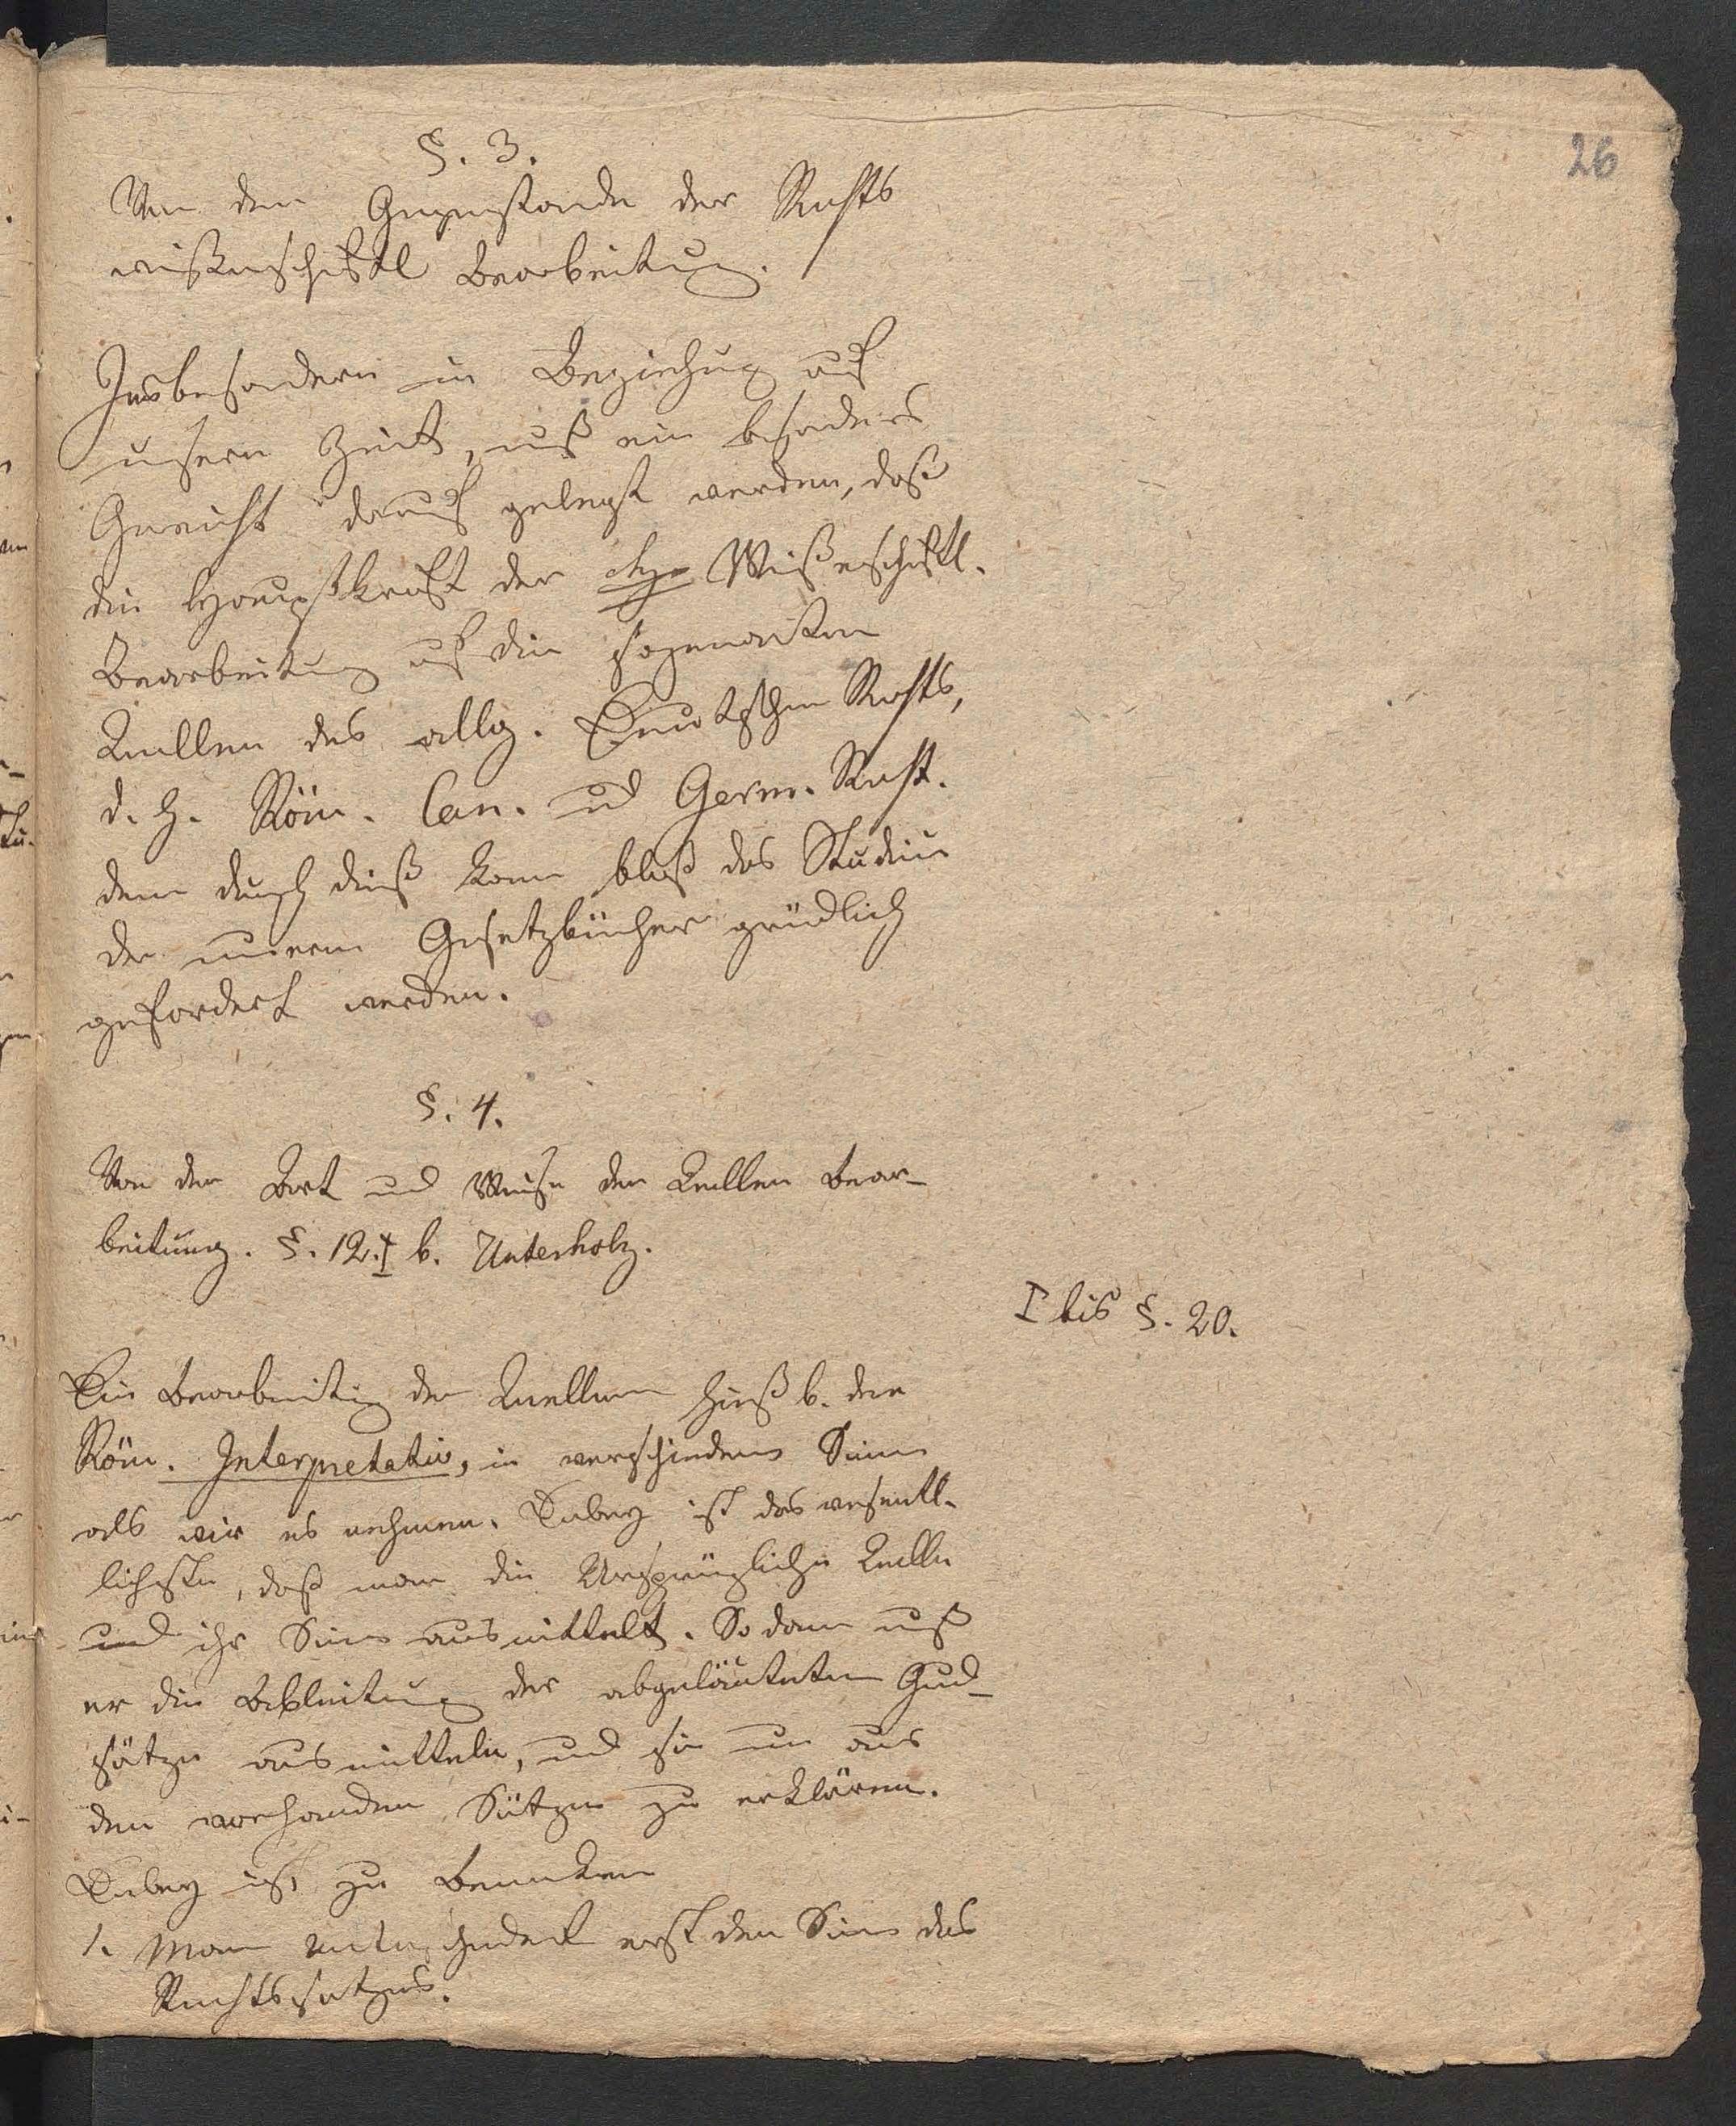 26
§. 3.
Von dem Gegenstande der Rechts
wißenschftl Bearbeitung.
Insbesondern in Beziehung auf
unsere Zeit, muß ein besonders
Gewicht darauf gelegt werden, daß
die Hauptkraft der Wißenschftl.
Bearbeitung auf die sogenanten
Quellen des allg. Deutschen Rechts,
d. h. Röm. Can. und Germ. Recht.
denn durch dieß kann bloß das Studium
der neuern Gesetzbücher gründlich
gefordert werden.
§. 4.
Von der Art und Weise der Quellen Bear-
beitung. §. 12. I b. Unterholz.
I bis §. 20.
Die Bearbeitung der Quellen hieß b. den
Röm. Interpretatio, in verschiedenem Sinn
als wir es nehmen. Dabey ist das wesentl-
lichste, daß man die Ursprüngliche Quelle
und ihr Sinn ausmittelt. So dann muß
er die Ableitung der abgeläuteten Grund-
sätze ausmitteln, und sie nun aus
den vorhanden Sätzen zu erklären.
Dabey ist zu Bemerken
1. Man unterscheidet erst den Sinn des
Rechtssatzes.